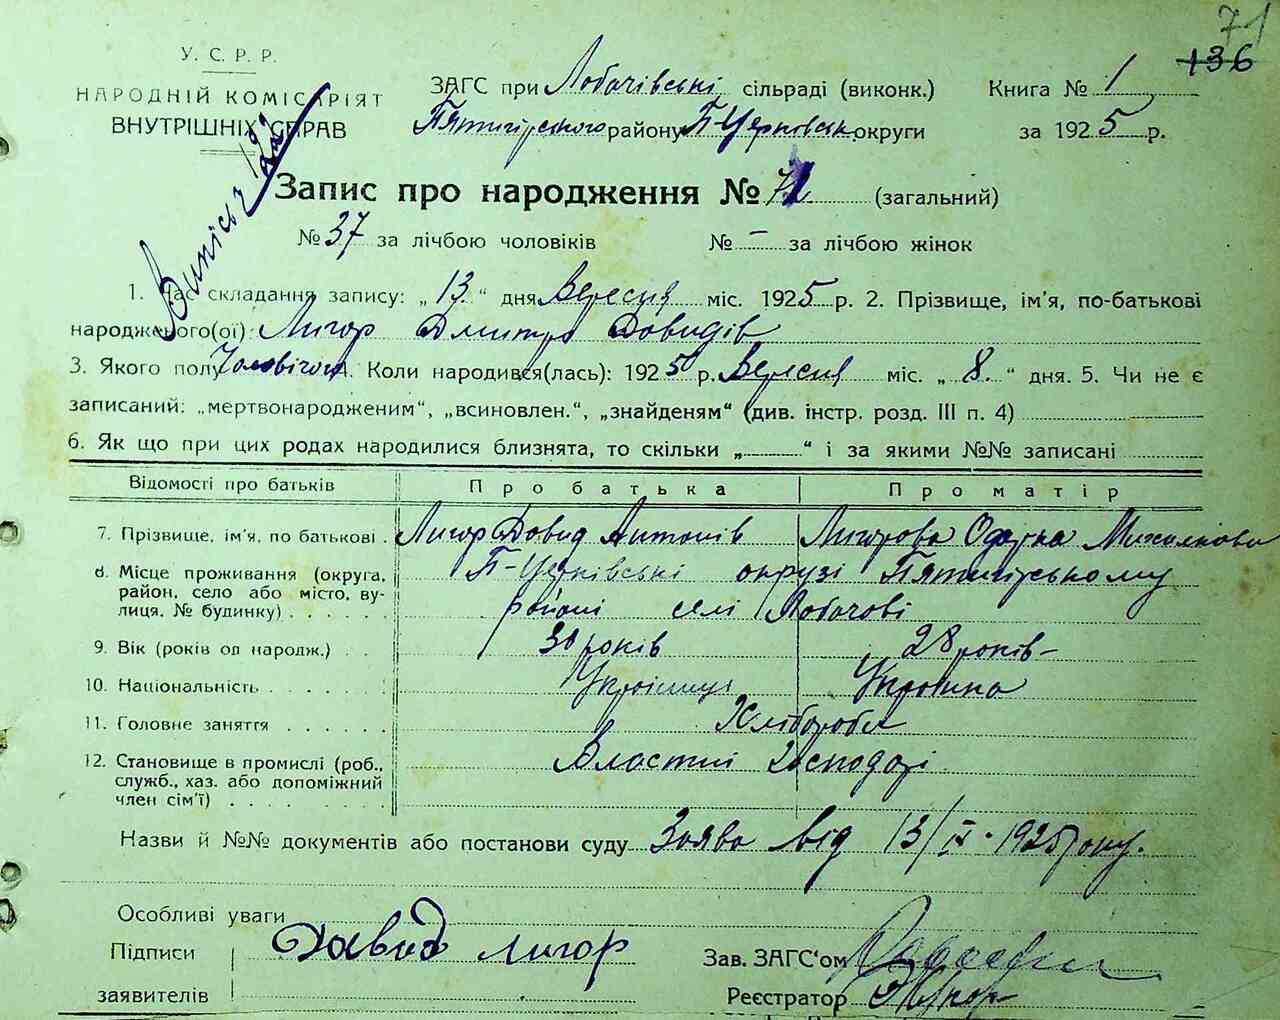 71
136
У. С. Р. Р.
НАРОДНІЙ КОМІСАРІЯТ
ВНУТРІШНІХ СПРАВ
ЗАГС при Лобачівські сільраді (виконк.) Книга № 1
Пятигірського району Б Церковськ округи за 1925 р.
Запис про народження № 71 (загальний)
№ 37 за лічбою чоловіків № – за лічбою жінок
1. Час складання запису: „ 13 “ дня Вересня міс. 1925 р. 2. Прізвище, ім'я, по-батькові
народженого(ої) Лигор Дмитро Довидів
3. Якого полу Чоловічого 4. Коли народився(лась): 1925 р. Вересня міс. „ 8. “ дня. 5. Чи не є
записаний: „мертвонародженим“, „всиновлен.“, „знайденям“ (див. інстр. розд. III п. 4)
6. Як що при цих родах народилися близнята, то скільки „ “ і за якими №№ записані
Відомості про батьків Про батька Про матір
7. Прізвище, ім'я, по батькові Лигор Довид Антонів Лигорова Одарка Михалкова
8. Місце проживання (округа, район, село або місто, вулиця, № будинку) Б-Церківські окрузі Пятигірському
районі селі Лобачові
9. Вік (років од народж.) 30 років 28 років-
10. Національність Українці Українка
11. Головне заняття Хлібороби
12. Становище в промислі (роб., служб., хаз. або допоміжний член сім'ї) Властні господарі
Назви й №№ документів або постанови суду Заява від 13/IX - 1925 року.
Особливі уваги
Підписи Давид Лигор Зав. ЗАГС'ом
заявителів Реєстратор